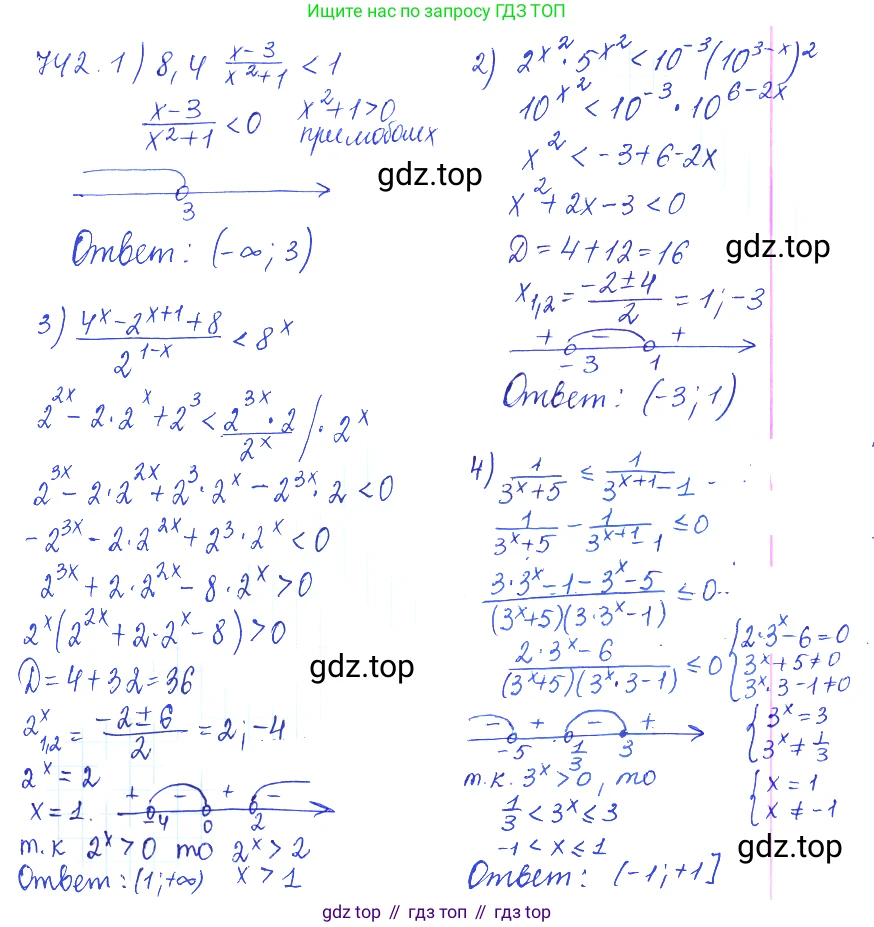 Ищите нас по запросу ГДЗ ТОП
742. 1) 8,4^{\frac{x-3}{x^2+1}} < 1
\frac{x-3}{x^2+1} < 0 x^2+1>0
при любых x
3
Ответ: (-∞; 3)
2) 2^{x^2} · 5^{x^2} < 10^{-3}(10^{3-x})^2
10^{x^2} < 10^{-3} · 10^{6-2x}
x^2 < -3+6-2x
x^2+2x-3<0
D=4+12=16
x_{1,2} = \frac{-2±4}{2} = 1; -3
+ - +
-3 1
Ответ: (-3; 1)
3) \frac{4^x-2^{x+1}+8}{2^{1-x}} < 8^x
2^{2x} - 2·2^x + 2^3 < \frac{2^{3x}·2}{2^x} /·2^x
2^{3x} - 2·2^{2x} + 2^3·2^x - 2^{3x}·2 < 0
-2^{3x} - 2·2^{2x} + 2^3·2^x < 0
2^{3x} + 2·2^{2x} - 8·2^x > 0
2^x(2^{2x} + 2·2^x - 8) > 0
D=4+32=36
2^x_{1,2} = \frac{-2±6}{2} = 2; -4
2^x = 2
x = 1.
+ - + -
-4 0 2
т.к 2^x > 0 то 2^x > 2
Ответ: (1; +∞) x > 1
4) \frac{1}{3^x+5} ≤ \frac{1}{3^{x+1}-1}
\frac{1}{3^x+5} - \frac{1}{3^{x+1}-1} ≤ 0
\frac{3·3^x-1-3^x-5}{(3^x+5)(3·3^x-1)} ≤ 0
\frac{2·3^x-6}{(3^x+5)(3^x·3-1)} ≤ 0
{2·3^x-6=0
3^x+5≠0
3^x·3-1≠0
{3^x=3
3^x≠\frac{1}{3}
{x=1
x≠-1
- + - +
-5 \frac{1}{3} 3
т.к. 3^x>0, то
\frac{1}{3} < 3^x ≤ 3
-1 < x ≤ 1
Ответ: (-1; +1]
gdz.top
gdz.top
gdz.top
gdz.top
gdz top // гдз топ // gdz top